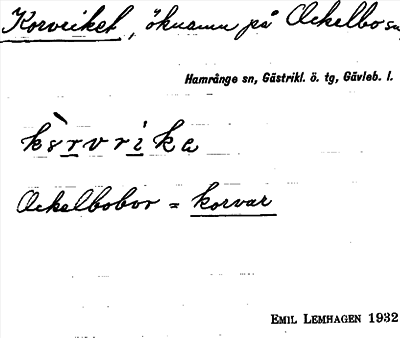 Korvriket, öknamn på Ockelbo sn,
Hamrånge sn, Gästrikl. ö. tg, Gävleb. l.
kòrvrika
Ockelbobor = korvar
EMIL LEMHAGEN 1932